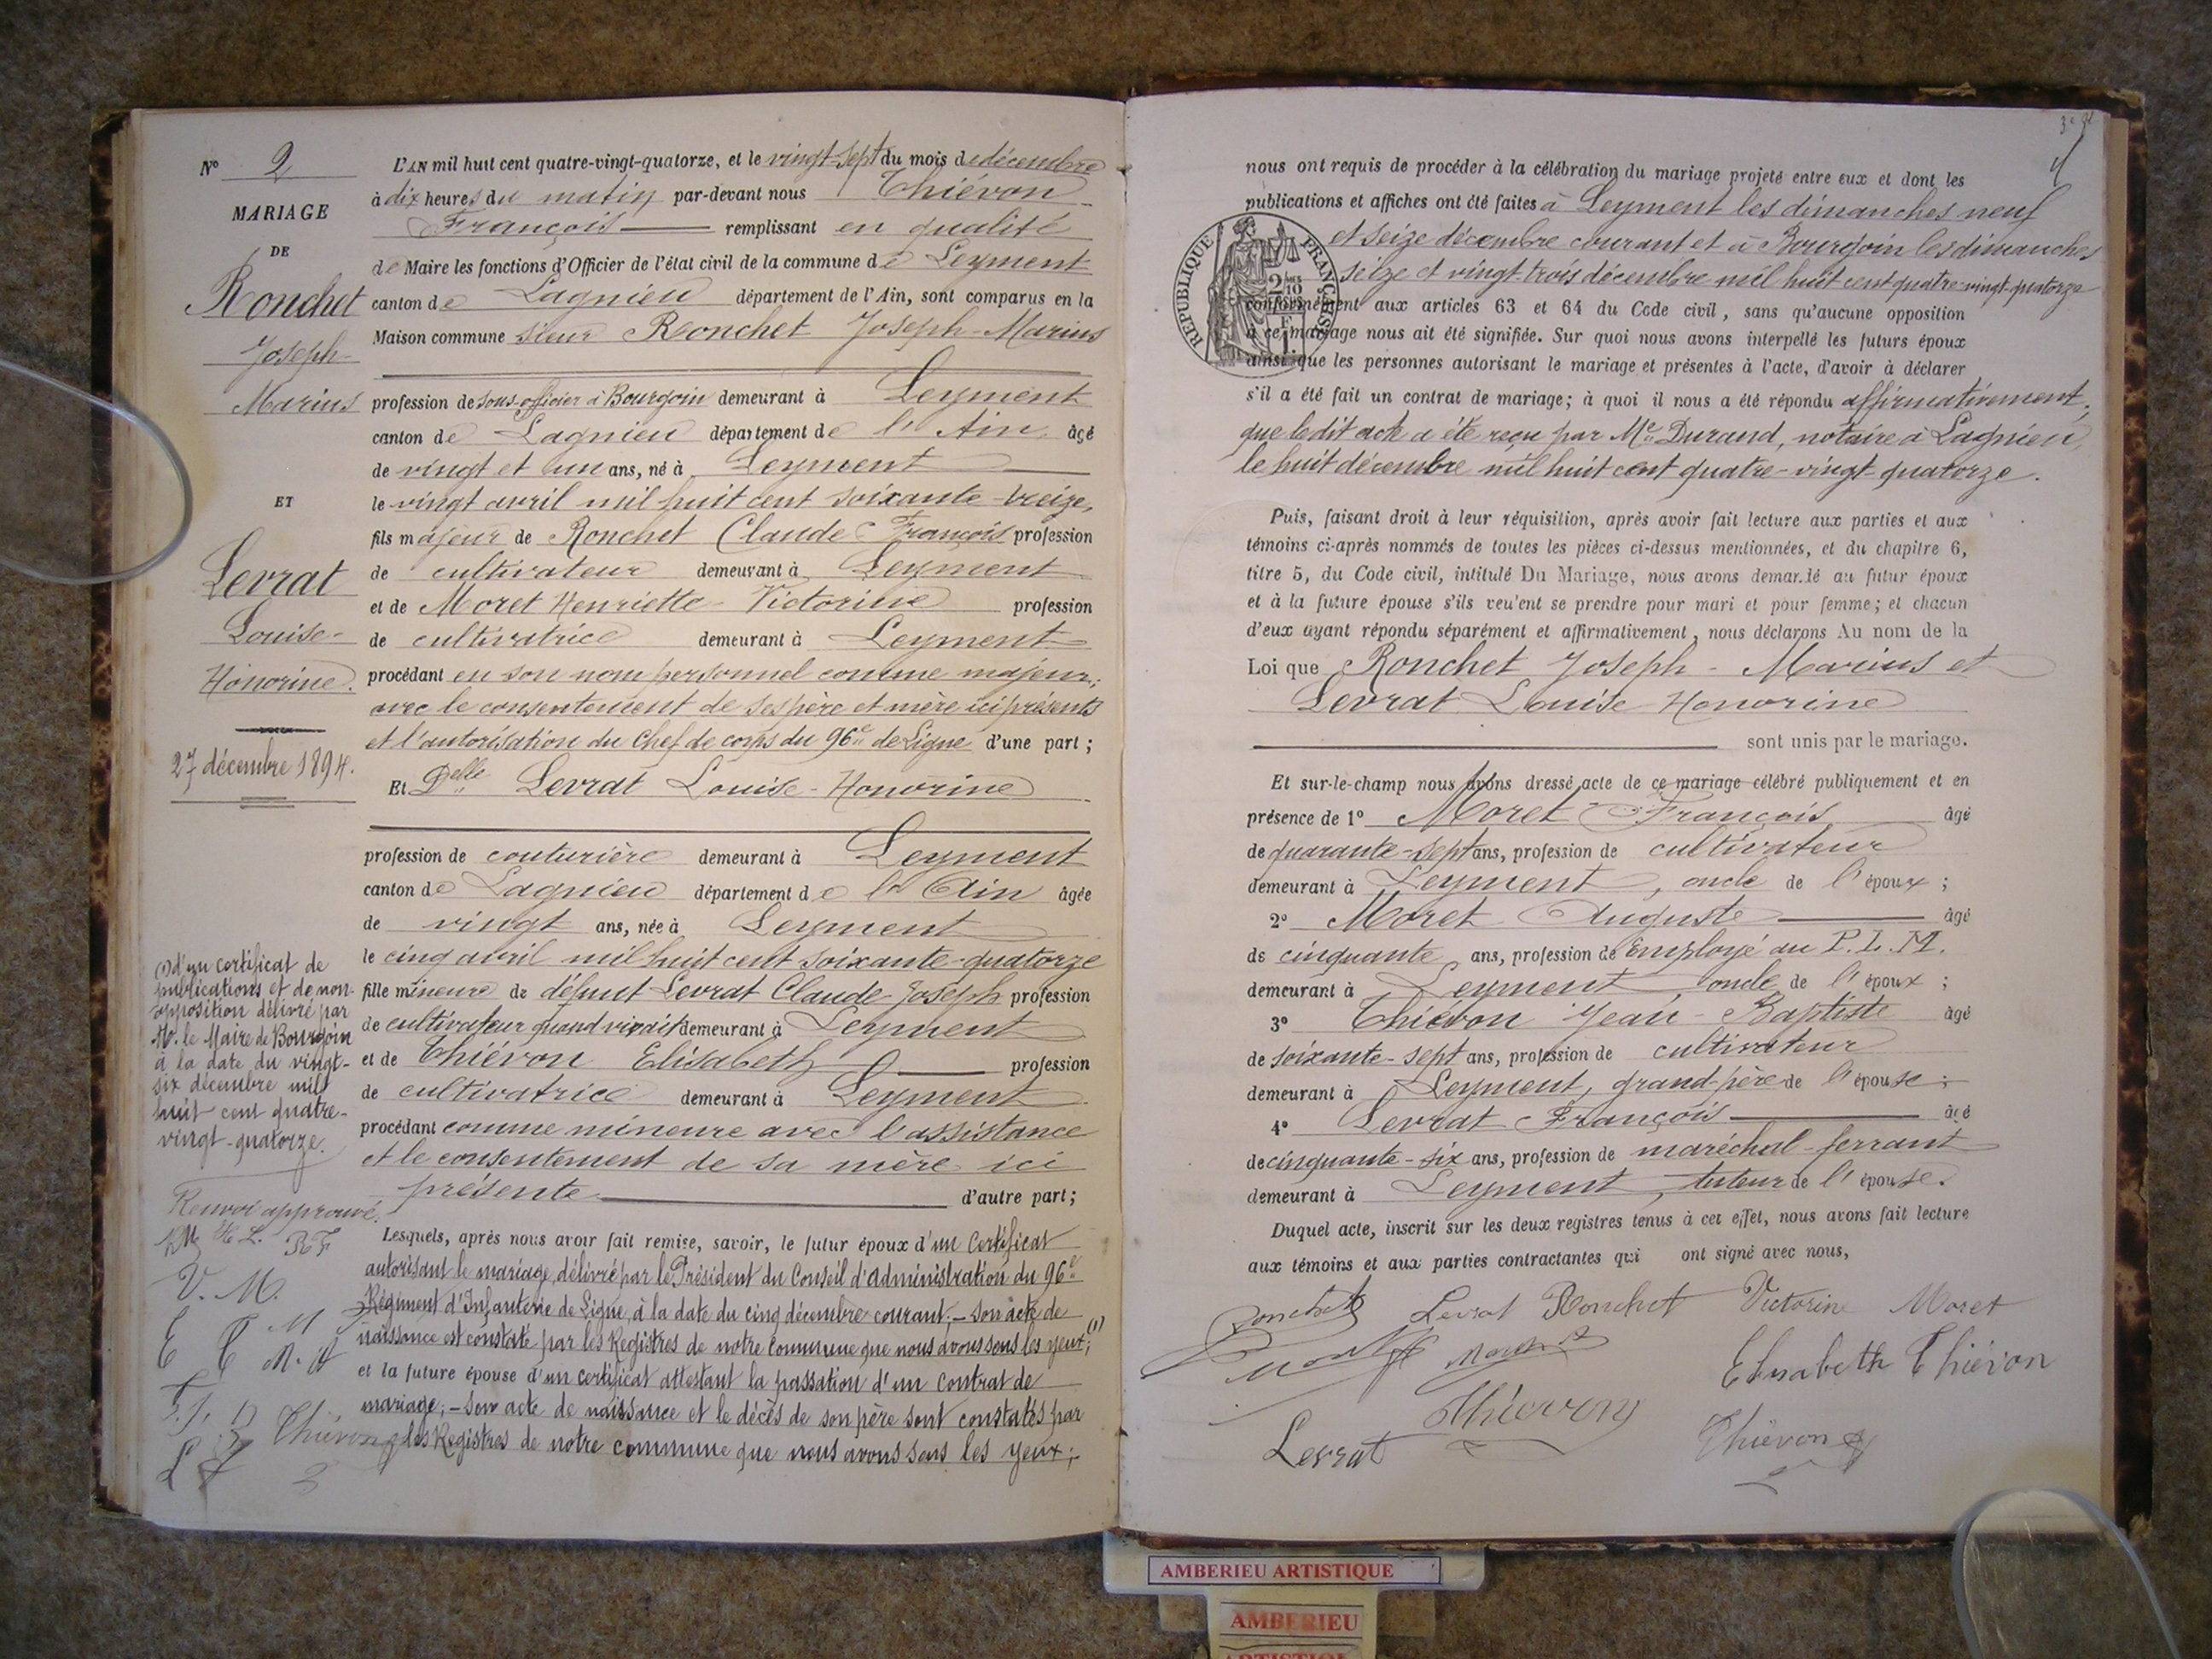 Nº 2
MARIAGE
DE
Ronchet
Joseph-
Marius
ET
Levrat
Louise-
Honorine.
27 décembre 1894.
(1) d'un certificat de
publications et de non-
opposition délivré par
M. le Maire de Bourgoin
à la date du vingt-
six décembre mil
huit cent quatre-
vingt-quatorze.
Renvoi approuvé.
H. L. R F
V. M.
E T M
Thiévon
L'AN mil huit cent quatre-vingt-quatorze, et le vingt-sept du mois de décembre
à dix heures du matin par-devant nous Thiévon
François remplissant en qualité
de Maire les fonctions d'Officier de l'état civil de la commune de Leyment
canton de Lagnieu département de l'Ain, sont comparus en la
Maison commune sieur Ronchet Joseph-Marius
profession de sous-officier à Bourgoin demeurant à Leyment
canton de Lagnieu département de l'Ain âgé
de vingt et un ans, né à Leyment
le vingt avril mil huit cent soixante-treize,
fils majeur de Ronchet Claude François profession
de cultivateur demeurant à Leyment
et de Moret Henriette-Victorine profession
de cultivatrice demeurant à Leyment
procédant en son nom personnel comme majeur;
avec le consentement de ses père et mère ici présents
et l'autorisation du Chef de corps du 96e de Ligne d'une part;
Et Delle Levrat Louise-Honorine
profession de couturière demeurant à Leyment
canton de Lagnieu département de l'Ain âgée
de vingt ans, née à Leyment
le cinq avril mil huit cent soixante-quatorze
fille mineure de défunt Levrat Claude-Joseph profession
de cultivateur quand vivait demeurant à Leyment
et de Thiévon Elisabeth profession
de cultivatrice demeurant à Leyment
procédant comme mineure avec l'assistance
et le consentement de sa mère ici
présente d'autre part;
Lesquels, après nous avoir fait remise, savoir, le futur époux d'un Certificat
autorisant le mariage, délivré par le Président du Conseil d'administration du 96e
Régiment d'Infanterie de Ligne, à la date du cinq décembre courant; - Son acte de
naissance est constaté par les Registres de notre commune que nous avons sous les yeux; (1)
et la future épouse d'un certificat attestant la passation d'un contrat de
mariage; - son acte de naissance et le décès de son père sont constatés par
les Registres de notre commune que nous avons sous les yeux;
nous ont requis de procéder à la célébration du mariage projeté entre eux et dont les
publications et affiches ont été faites à Leyment les dimanches neuf
et seize décembre courant et à Bourgoin les dimanches
seize et vingt-trois décembre mil huit cent quatre-vingt-quatorze
RÉPUBLIQUE FRANÇAISE
conformément aux articles 63 et 64 du Code civil, sans qu'aucune opposition
à ce mariage nous ait été signifiée. Sur quoi nous avons interpellé les futurs époux
ainsi que les personnes autorisant le mariage et présentes à l'acte, d'avoir à déclarer
s'il a été fait un contrat de mariage; à quoi il nous a été répondu affirmativement,
que ledit acte a été reçu par Me Durand, notaire à Lagnieu,
le huit décembre mil huit cent quatre-vingt-quatorze.
Puis, faisant droit à leur réquisition, après avoir fait lecture aux parties et aux
témoins ci-après nommés de toutes les pièces ci-dessus mentionnées, et du chapitre 6,
titre 5, du Code civil, intitulé Du Mariage, nous avons demandé au futur époux
et à la future épouse s'ils veulent se prendre pour mari et pour femme; et chacun
d'eux ayant répondu séparément et affirmativement, nous déclarons Au nom de la
Loi que Ronchet Joseph-Marius et
Levrat Louise-Honorine
sont unis par le mariage.
Et sur-le-champ nous avons dressé acte de ce mariage célébré publiquement et en
présence de 1º Moret François âgé
de quarante-sept ans, profession de cultivateur
demeurant à Leyment, oncle de l'époux;
2º Moret Auguste âgé
de cinquante ans, profession de Employé au P. L. M.
demeurant à Leyment, oncle de l'époux;
3º Thiévon Jean-Baptiste âgé
de soixante-sept ans, profession de cultivateur
demeurant à Leyment, grand-père de l'épouse;
4º Levrat François âgé
de cinquante-six ans, profession de maréchal-ferrant
demeurant à Leyment, tuteur de l'épouse.
Duquel acte, inscrit sur les deux registres tenus à cet effet, nous avons fait lecture
aux témoins et aux parties contractantes qui ont signé avec nous,
Ronchet Levrat Ronchet Victorine Moret
Elisabeth Thiévon
Thiévon
Levrat
Thiévon
AMBERIEU ARTISTIQUE
AMBERIEU
ARTISTIQUE